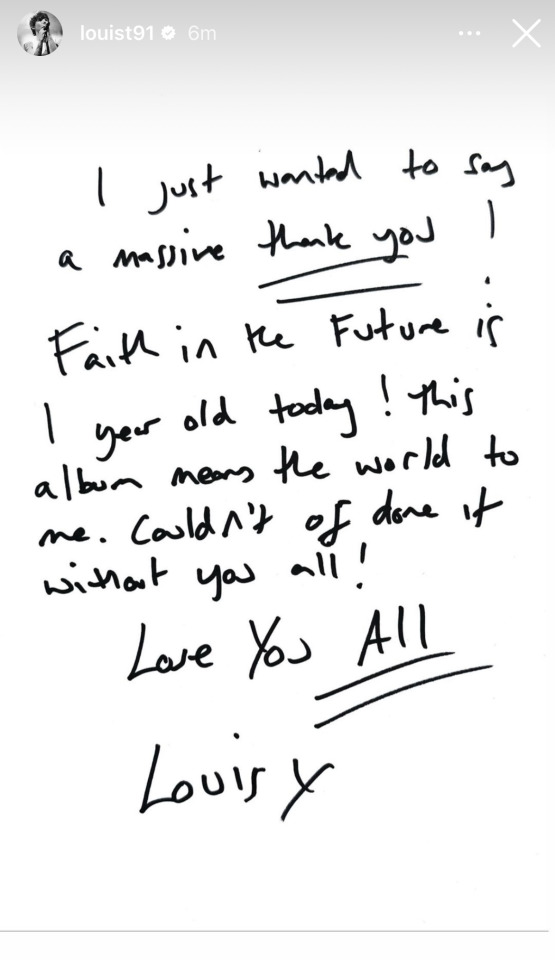 louist91 6m
I just wanted to say
a massive thank you !
Faith in the Future is
1 year old today! This
album means the world to
me. Couldn't of done it
without you all!
Love You All
Louis x